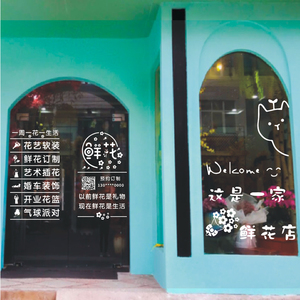 一周一花一生活
花艺软装
鲜花订制
艺术插花
婚车装饰
开业花篮
气球派对
鲜花
预约订制
130****0000
以前鲜花是礼物
现在鲜花是生活
Welcome
这是一家
鲜花店